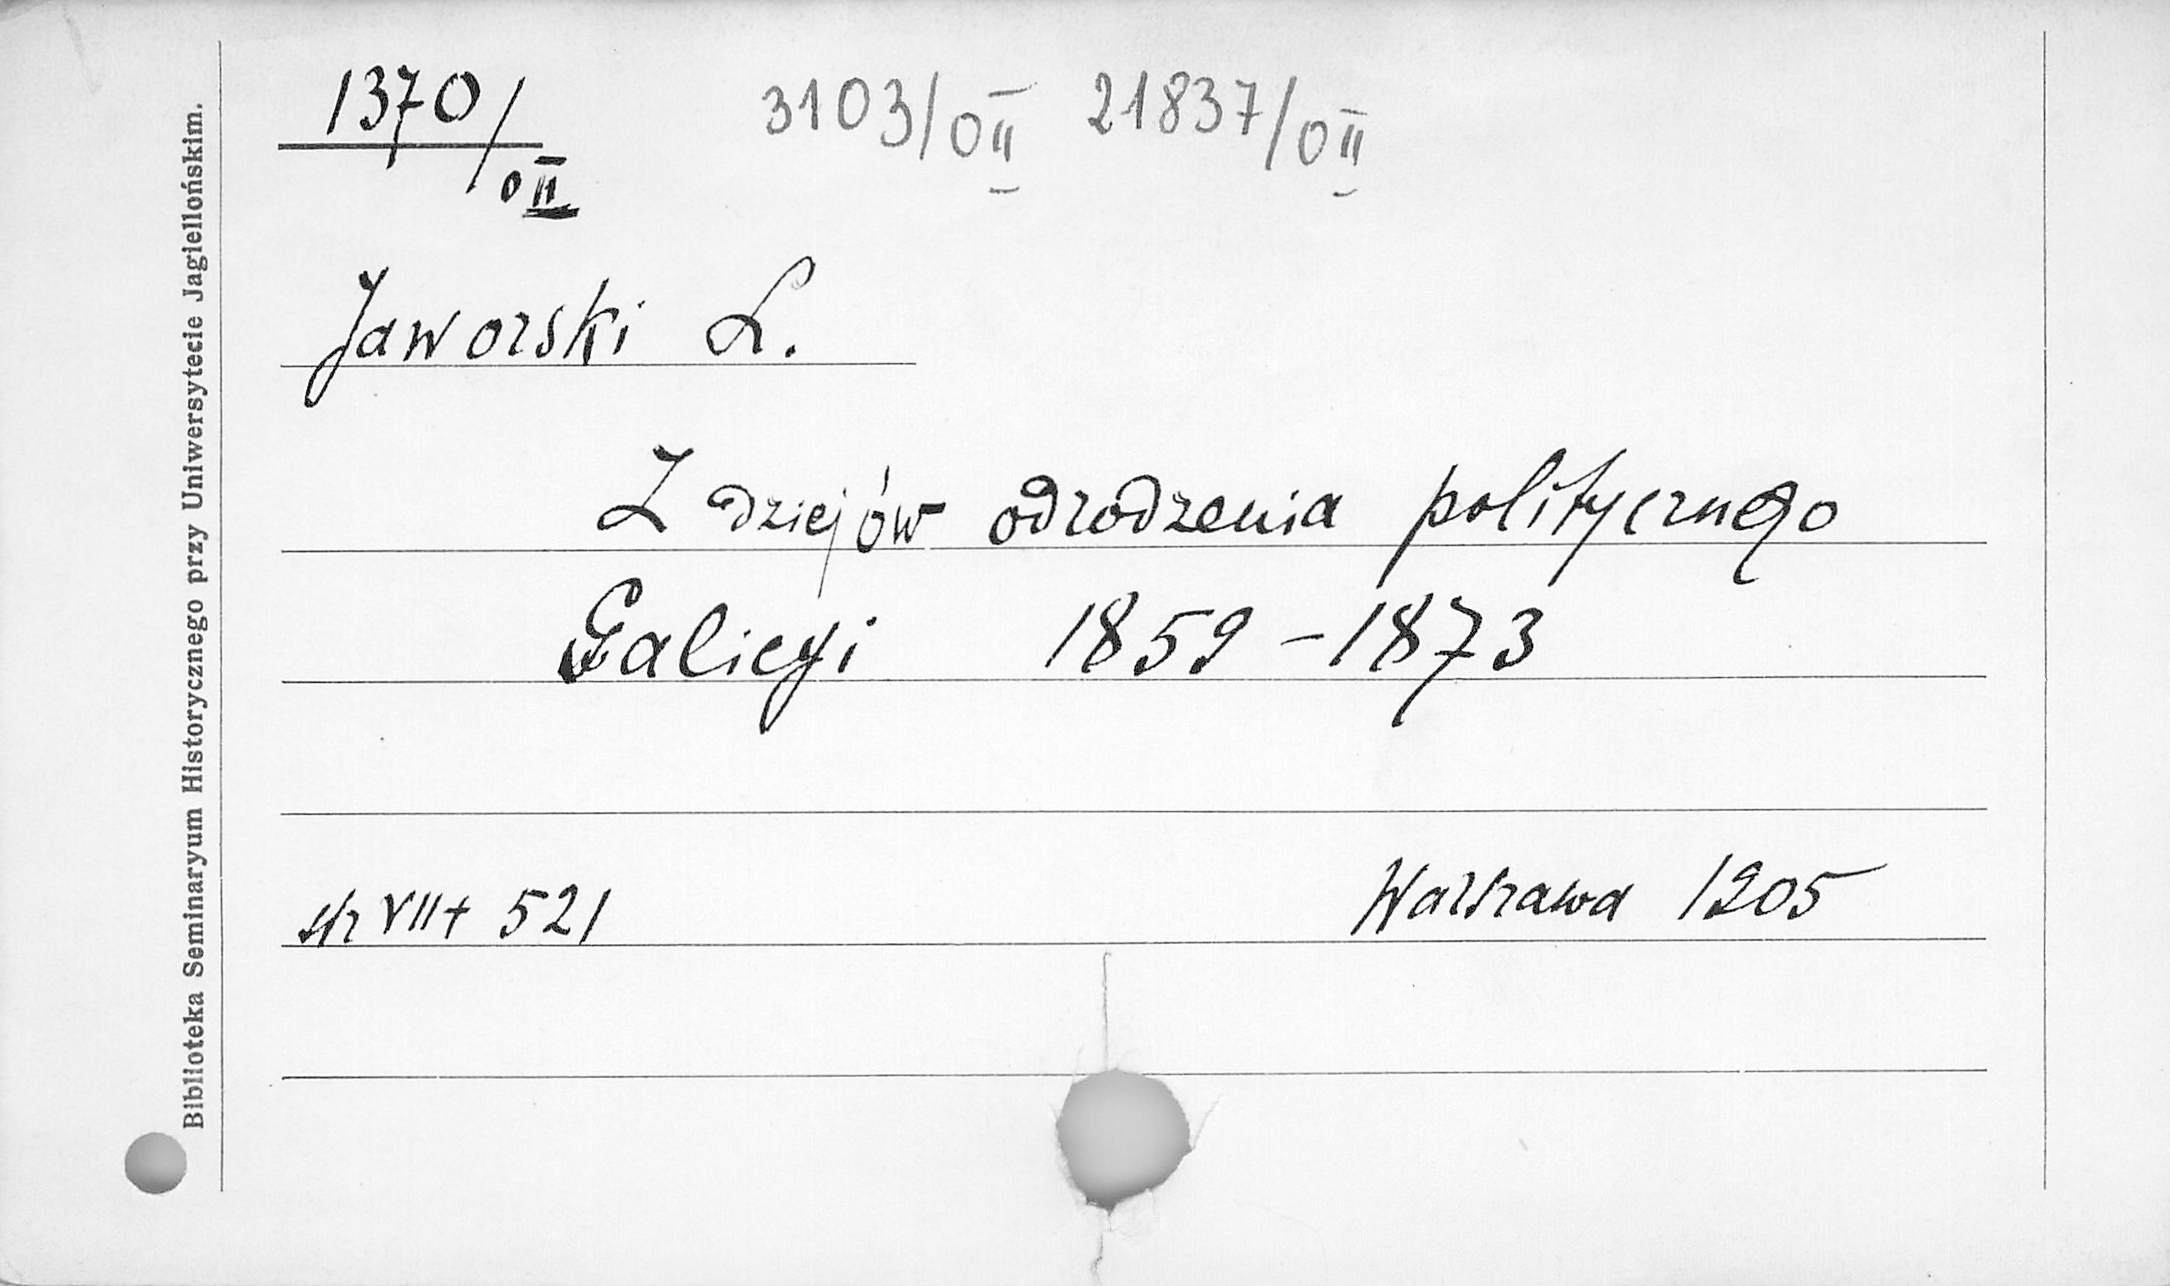 1370/oII 3103/oII 21837/oII
Jaworski L.
Z dziejów odrodzenia politycznego
Galicyi 1859-1873
str VII + 521 Warszawa 1905
Biblioteka Seminaryum Historycznego przy Uniwersytecie Jagiellońskim.